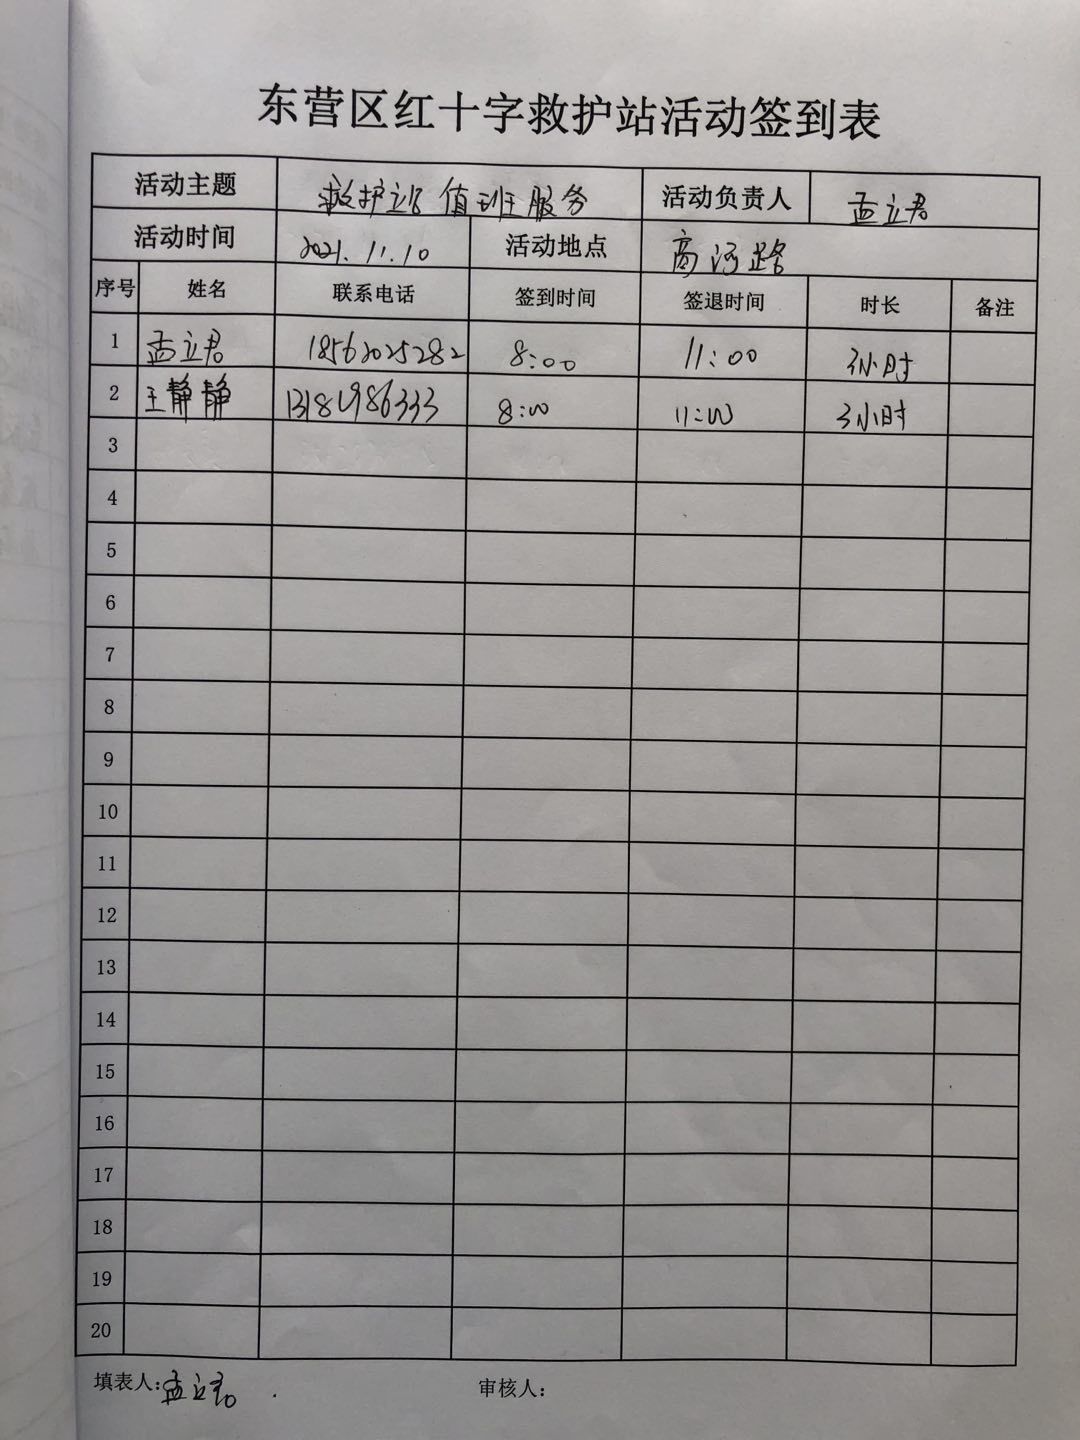 东营区红十字救护站活动签到表
活动主题 救护站值班服务 活动负责人 孟立君
活动时间 2021.11.10 活动地点 商河路
序号 姓名 联系电话 签到时间 签退时间 时长 备注
1 孟立君 18562025282 8:00 11:00 3小时
2 王静静 13181986333 8:00 11:00 3小时
3
4
5
6
7
8
9
10
11
12
13
14
15
16
17
18
19
20
填表人:孟立君 审核人: